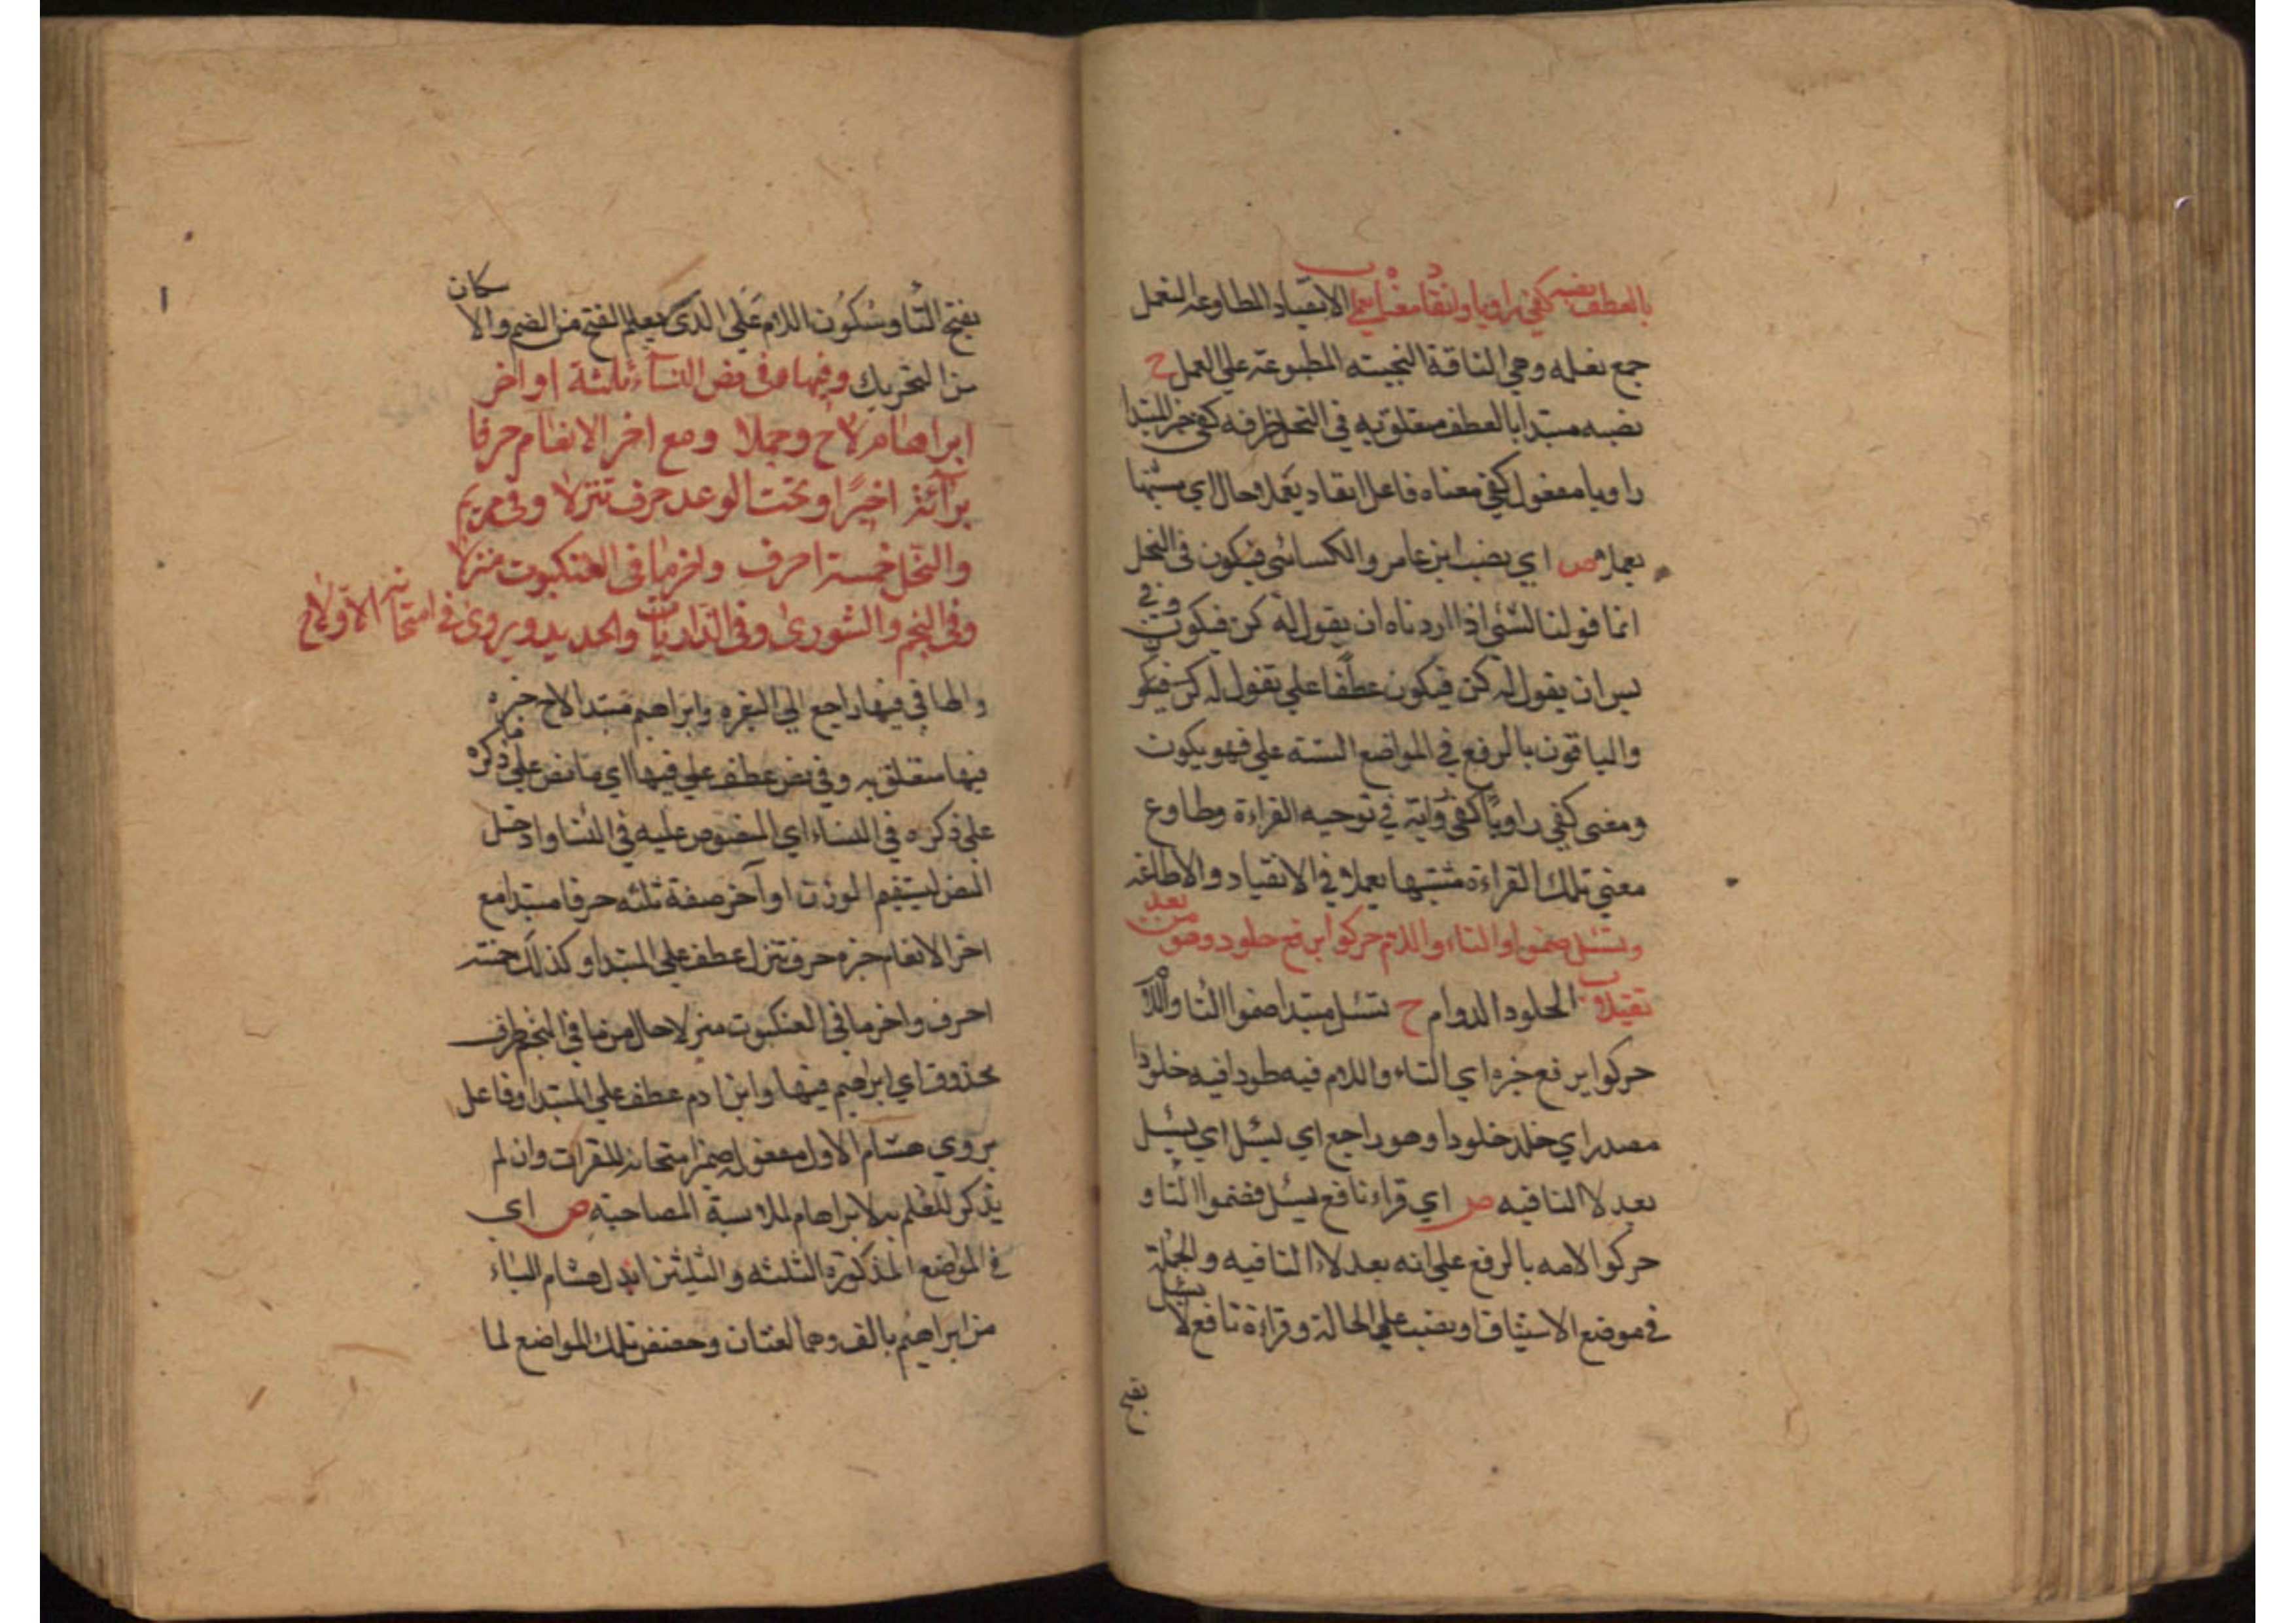 بالعطف نصبه كفى راويا وانقاد معناه يعملا الانقياد المطاوعه اليعمل
جمع يعمله وهي الناقة النجيبته المطبوعة علي العمل ح
نصبه مبتدا بالعطف متعلق به في النحل ظرفه كفى خبر المبتدا
راويا مفعول كفي معناه فاعل انقاد يعملا حال اي مشبها
يعملا ص اي نصب ابن عامر والكسائي فيكون في النحل
انما قولنا لشئ اذا اردناه ان يقول له كن فيكون وفي
يس ان يقول له كن فيكون عطفا علي يقول له كن فيكو
والباقون بالرفع في المواضع الستة علي فهو يكون
ومعنى كفي راويا كفي في توجيه القراءة وطاوع
معني تلك القراءة مشبها يعملا في الانقياد والاطاعه
وتسئل ضموا والتاء واللام حركوا برفع خلودا وهو من بعد
الخلود الدوام ح تسئل مبتدا ضموا التا واللا
حركوا برفع خبره اي التاء واللام فيه خلودا
مصدر اي خلد خلودا وهو راجع اي تسئل اي تسئل
بعد لا النافيه ص اي قراء نافع تسئل فضموا التا و
حركوا لامه بالرفع علي انه بعد لا النافيه والجملة
في موضع الاستيناف او نصب علي الحالة وقراءة نافع لا تسئل
بفتح
بفتح التا وسكون اللام علي الذي يعلم الفتح من الضم والاسكان
من التحريك وفيها وفي نص النساء ثلثة اواخر
ابراهام لاح وجملا ومع اخر الانعام حرفا
براءة اخيرا وتحت الرعد حرف تنزلا وفي مريم
والنحل خمسة احرف واخر ما في العنكبوت منزلا
وفي النجم والشورى وفي الذاريات والحديد ويروى في امتحانه الاولا ح
والها في فيها راجع الي البقره وابراهيم مبتدا لاح خبره
فيها متعلق به وفي نص عطف علي فيها اي ما نص علي ذكره
علي ذكره في النساء اي المنصوص عليه في النسا وادخل
النص ليستقيم الوزن اواخر صفة ثلثه حرفا مبتدا مع
اخر الانعام خبره حرف تنزل عطف علي المبتدا وكذلك خمسة
احرف واخر ما في العنكبوت منزلا حال من ما في النجم ظرف
محذوف اي ابراهيم فيها عطف علي المبتدا وفاعل
يروي هشام الاول مفعوله ضمير امتحانه للقرات وان لم
يذكر للعلم به لابراهام لملابسة المصاحبة ص اي
في المواضع المذكورة الثلثه والثلثين ابدل هشام الياء
من ابراهيم بالف وهما لغتان وخصص تلك المواضع لما